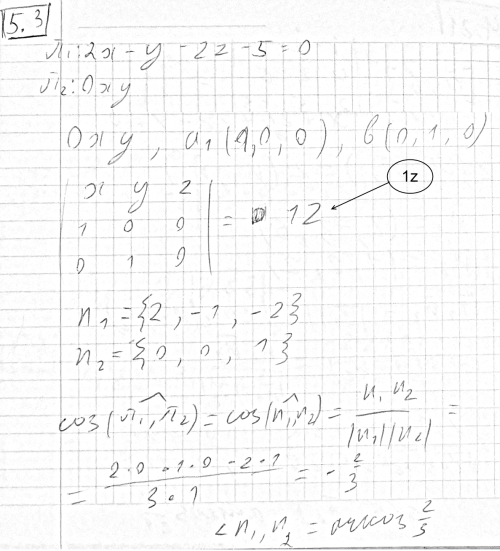 5.3
π₁: 2x - y - 2z - 5 = 0
π₂: Oxy
Oxy, a₁(1,0,0), b(0,1,0)
| x y z |
| 1 0 0 | = 1z
| 0 1 0 |
1z
n₁ = {2, -1, -2}
n₂ = {0, 0, 1}
cos(π₁,^π₂) = cos(n₁,^n₂) = n₁ n₂ / |n₁||n₂| =
= 2·0 · 1·0 - 2·1 / 3·1 = - 2/3
< n₁, n₂ = arccos 2/3